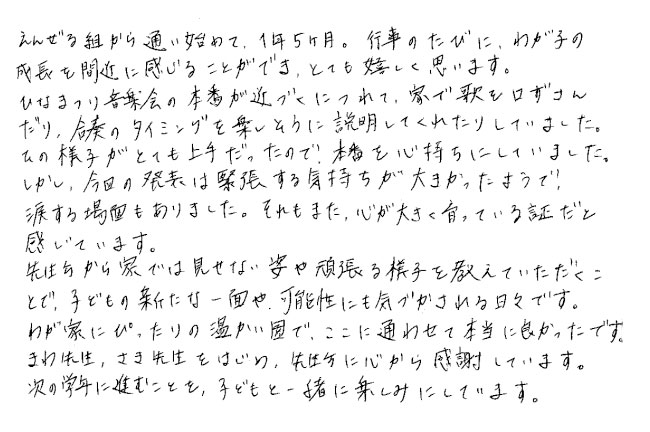 えんぜる組から通い始めて、1年5ヶ月。行事のたびに、わが子の
成長を間近に感じることができ、とても嬉しく思います。
ひなまつり音楽会の本番が近づくにつれて、家で歌を口ずさん
だり、合奏のタイミングを楽しそうに説明してくれたりしていました。
その様子がとても上手だったので、本番を心待ちにしていました。
しかし、今回の発表は緊張する気持ちが大きかったようで、
涙する場面もありました。それもまた、心が大きく育っている証だと
感じています。
先生方から家では見せない姿や頑張る様子を教えていただくこ
とで、子どもの新たな一面や、可能性にも気づかされる日々です。
わが家にぴったりの温かい園で、ここに通わせて本当に良かったです。
まわ先生、さき先生をはじめ、先生方に心から感謝しています。
次の学年に進むことを、子どもと一緒に楽しみにしています。